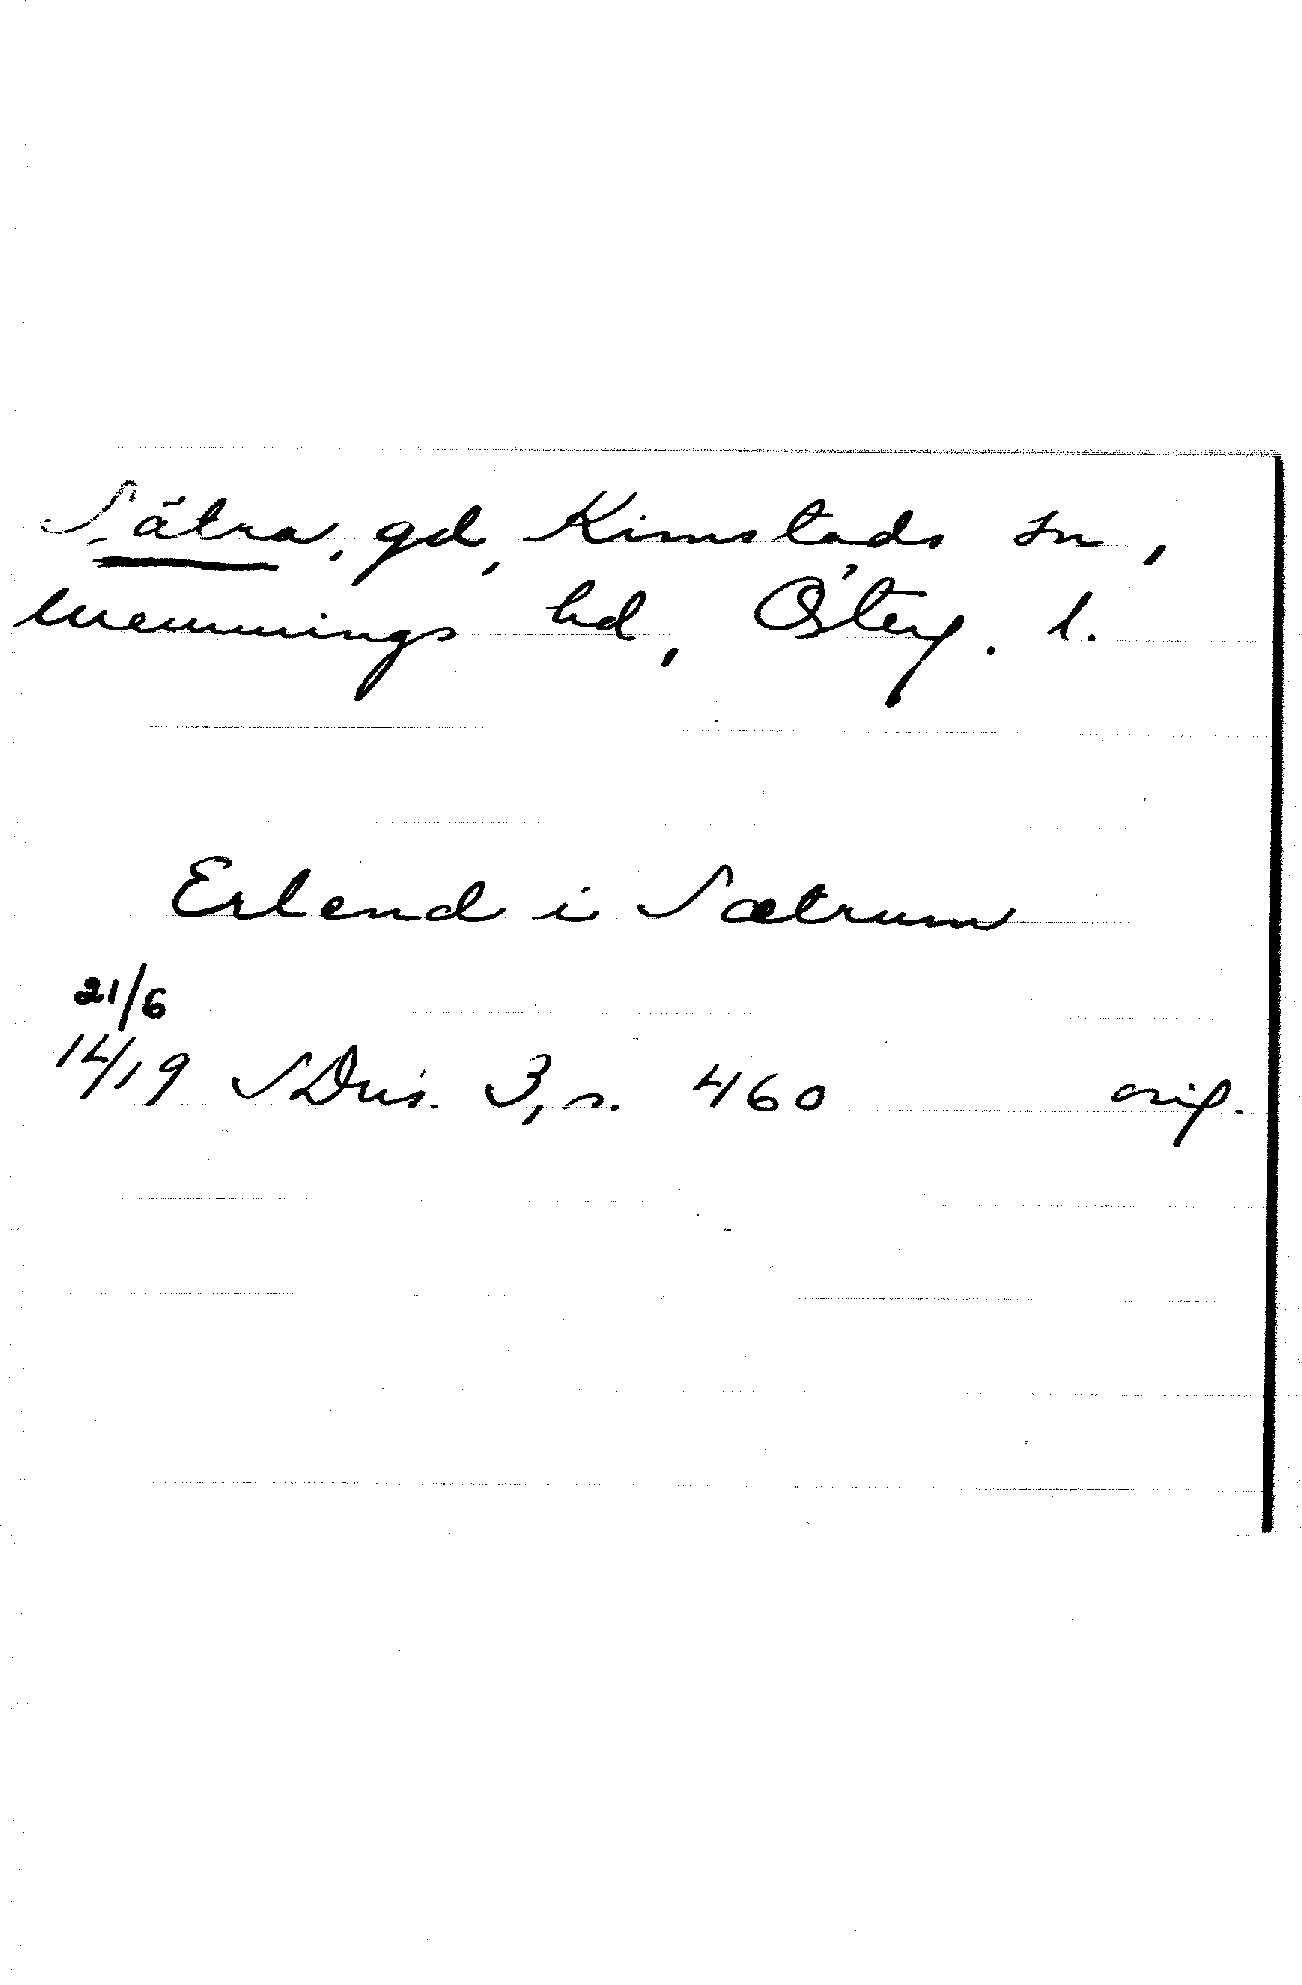 Sätra, gd, Kimstads sn,
Memmings hd, Österg. l.
Erlend i Sætrum
21/6
1419 SDns. 3, s. 460 orig.